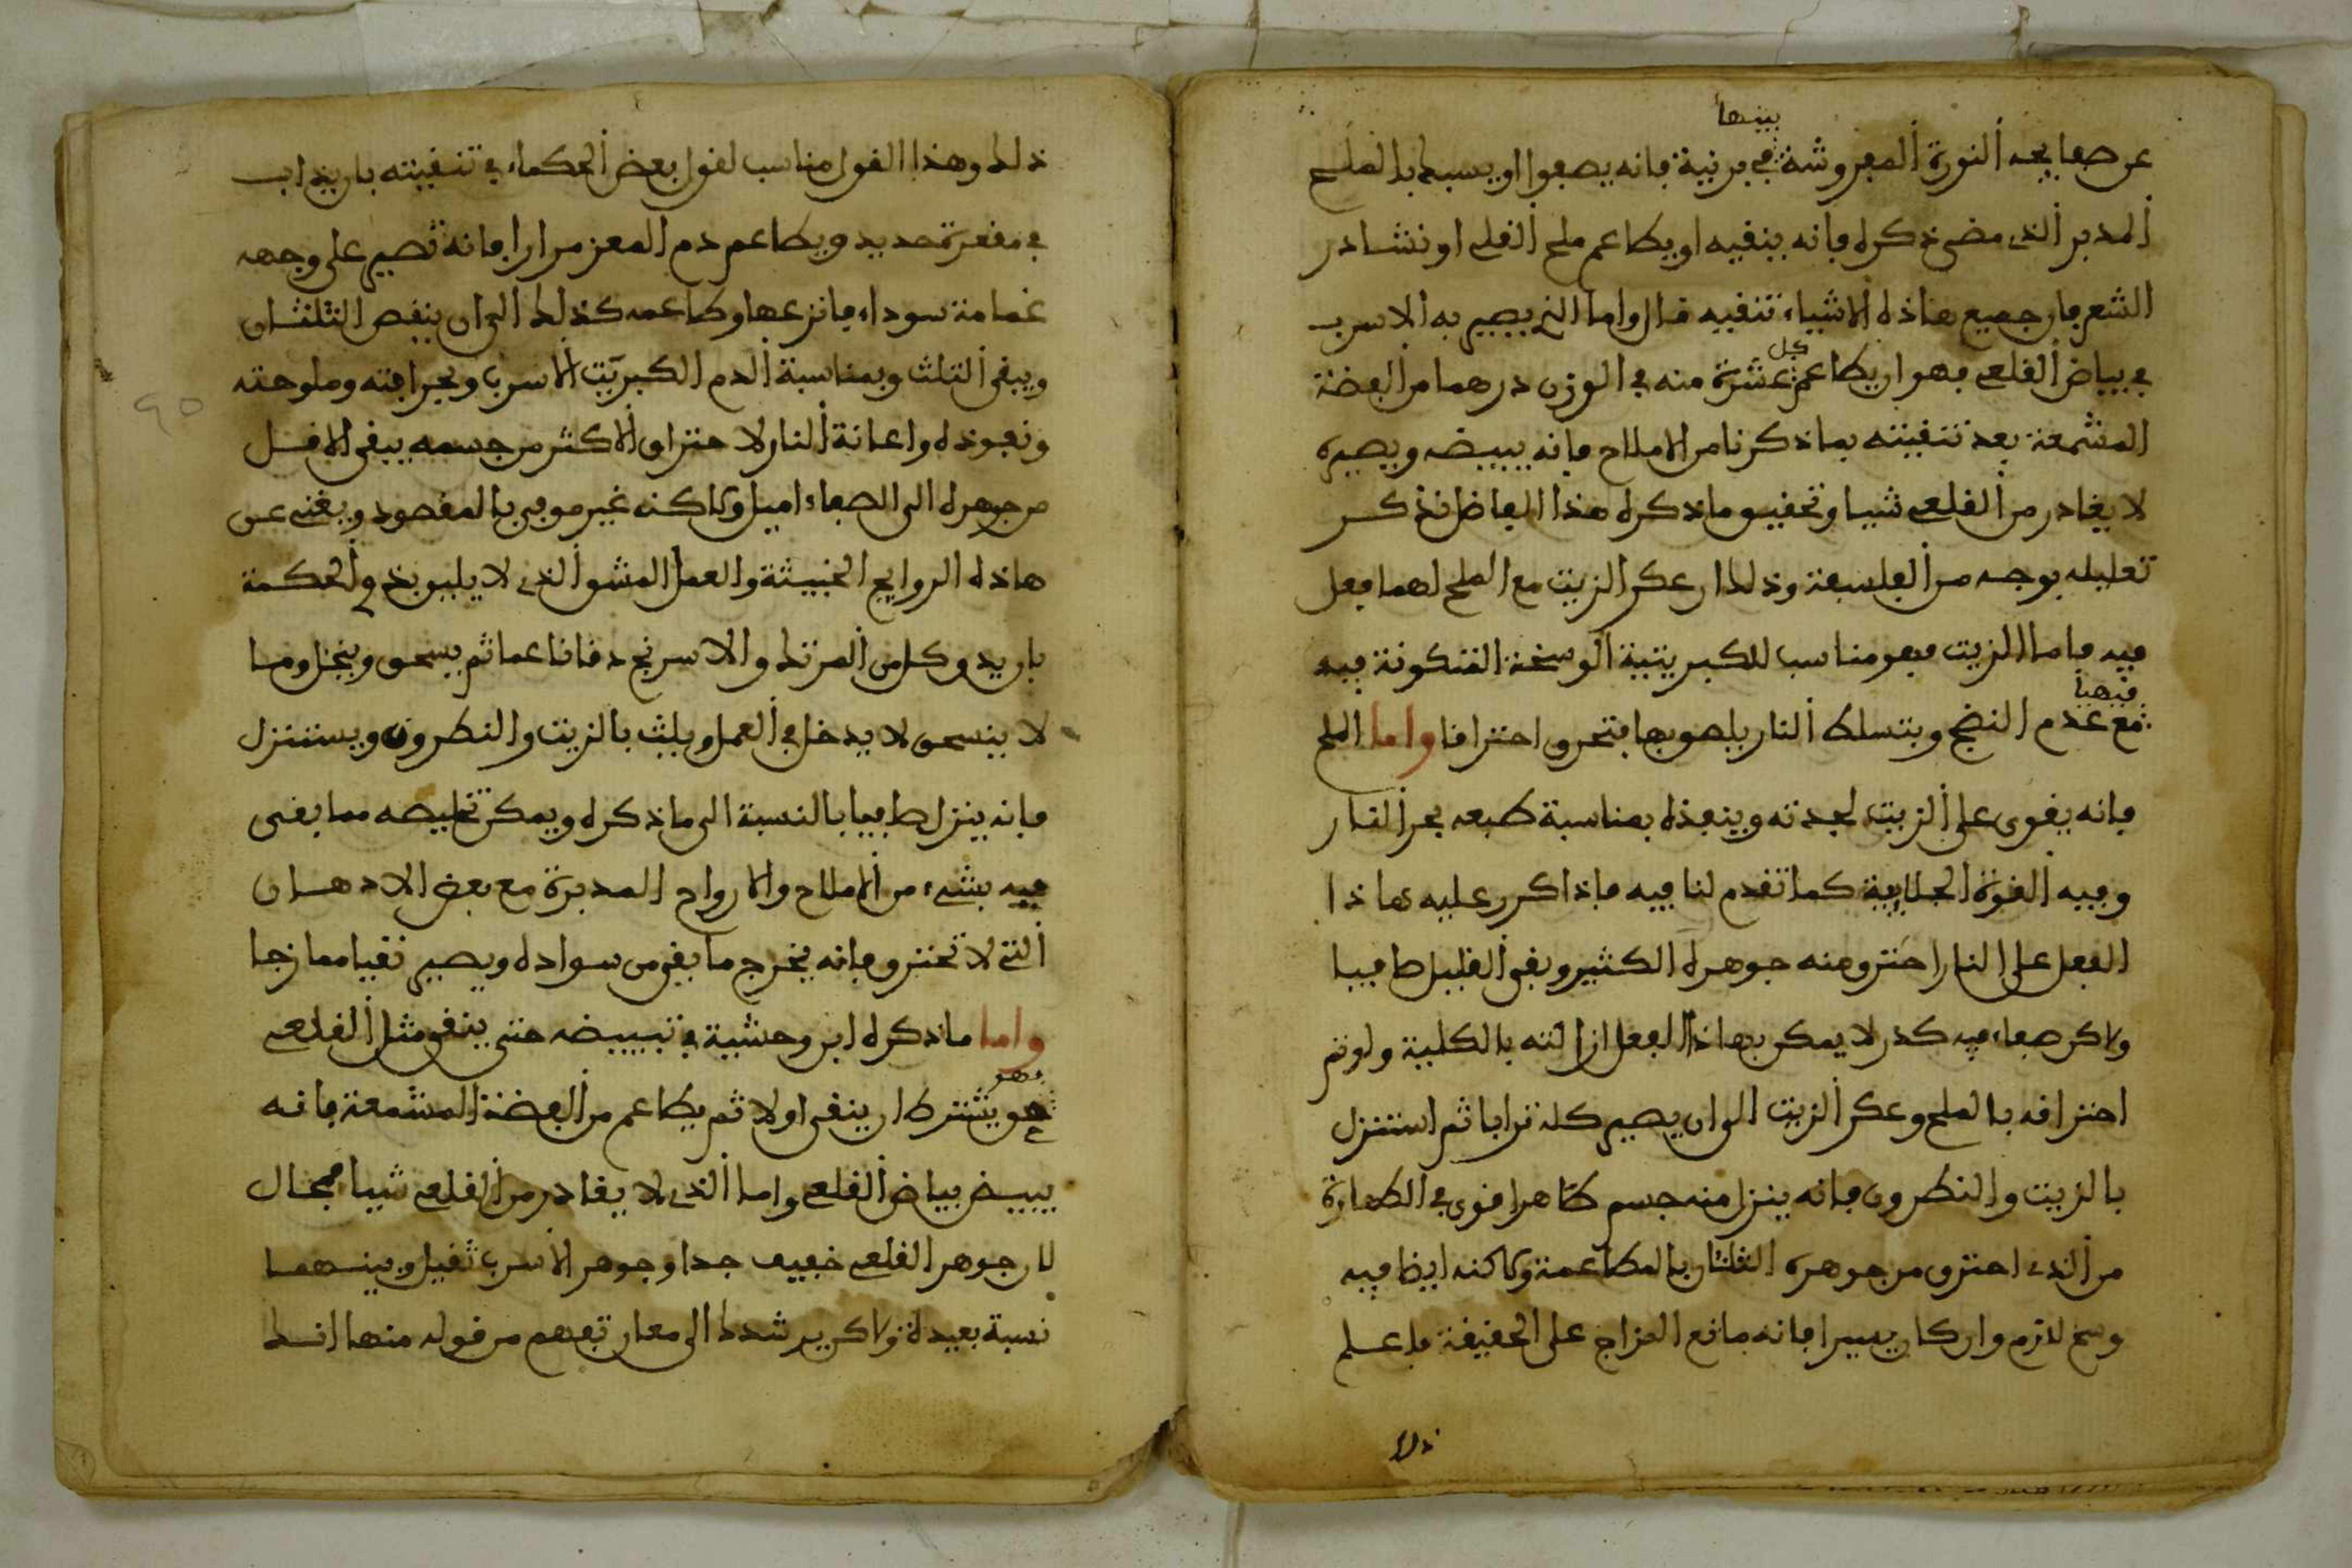 عن صفايحه النورة المفروشة في برنية بينها فانه يصفوا او يسبك بالملح
المدبر الذي مضى ذكره فانه ينقيه او يطاعم ملح القلي او نشادر
الشعر فان جميع هاذه الاشياء تنقيه قال واما الذي يصير به الاسرب
في بياض القلعي فهو ان يطاعم كل عشرة منه في الوزن درهما من الفضة
المشمعة بعد تنقيته بما ذكرنا من الاملاح فانه يبيضه ويصيره
لا يغادر من القلعي شيا وتحقيق ما ذكره هذا الفاضل نذكر
تعليله بوجه من الفلسفة وذلك ان عكر الزيت مع الملح لهما فعل
فيه فاما الزيت فهو مناسب للكبريتية الوسخة المتكونة فيه
مع عدم النضج فيهيا وبتسلط النار يلصق بها فتحرق احتراقا واما الملح
فانه يقوى على الزيت لحدته وينفذه بمناسبة طبعه بحر النار
وفيه القوة الجلايية كما تقدم لنا فيه فاذا كرر عليه هاذا
الفعل على النار احترق منه جوهره الكثير وبقى القليل صافيا
ولاكن صفاء فيه كدر لا يمكن بهاذا الفعل ازالته بالكلية ولو تم
احتراقه بالملح وعكر الزيت الى ان يصير كله ترابا ثم استنزل
بالزيت والنطرون فانه ينزل منه جسم طاهرا قوى في الطهارة
من الذي احترق من جوهره الثلثان بالمطاعمة ولاكنه ايضا فيه
وسخ لازم وان كان يسيرا فانه مانع المزاج على الحقيقة فاعلم
ذلك
ذلك وهذا القول مناسب لقول بعض الحكماء في تنقيته بان يذاب
في مقعرة حديد ويطاعم دم المعز مرارا فانه تصير على وجهه
غمامة سوداء فانزعها وطاعمه كذلك الى ان ينقص الثلثان
ويبقى الثلث وبمناسبة الدم الكبريت الاسرب وبحرافته وملوحته
ونفوذه واعانة النار لاحتراق الاكثر من جسمه يبقى الاقل
من جوهره الى الصفاء اميل ولاكنه غير موفي بالمقصود ويغني عن
هاذه الروايح الخبيثة والعمل المشو الذي لا يليق بذوي الحكمة
بان يدق كل من المرتك والاسرنج دقا ناعما ثم يسحق وينخل وما
لا ينسحق لا يدخل في العمل ويلث بالزيت والنطرون ويستنزل
فانه ينزل صافيا بالنسبة الى ما ذكره ويمكن تخليصه مما بقى
فيه بشيء من الاملاح والارواح المدبرة مع بعض الادهان
التي لا تحترق فانه يخرج ما بقى من سواده ويصير نقيا ممازجا
واما ما ذكره ابن وحشية في تبييضه حتى ينقى مثل القلعي
فهو يشترط ان ينقى اولا ثم يطاعم من الفضة المشمعة فانه
يبيض بياض القلعي واما الذي لا يغادر من القلعي شيا فمحال
لان جوهر القلعي خفيف جدا وجوهر الاسرب ثقيل وبينهما
نسبة بعيدة ولاكن يرشدك الى معان تفهم من قوله منها انك